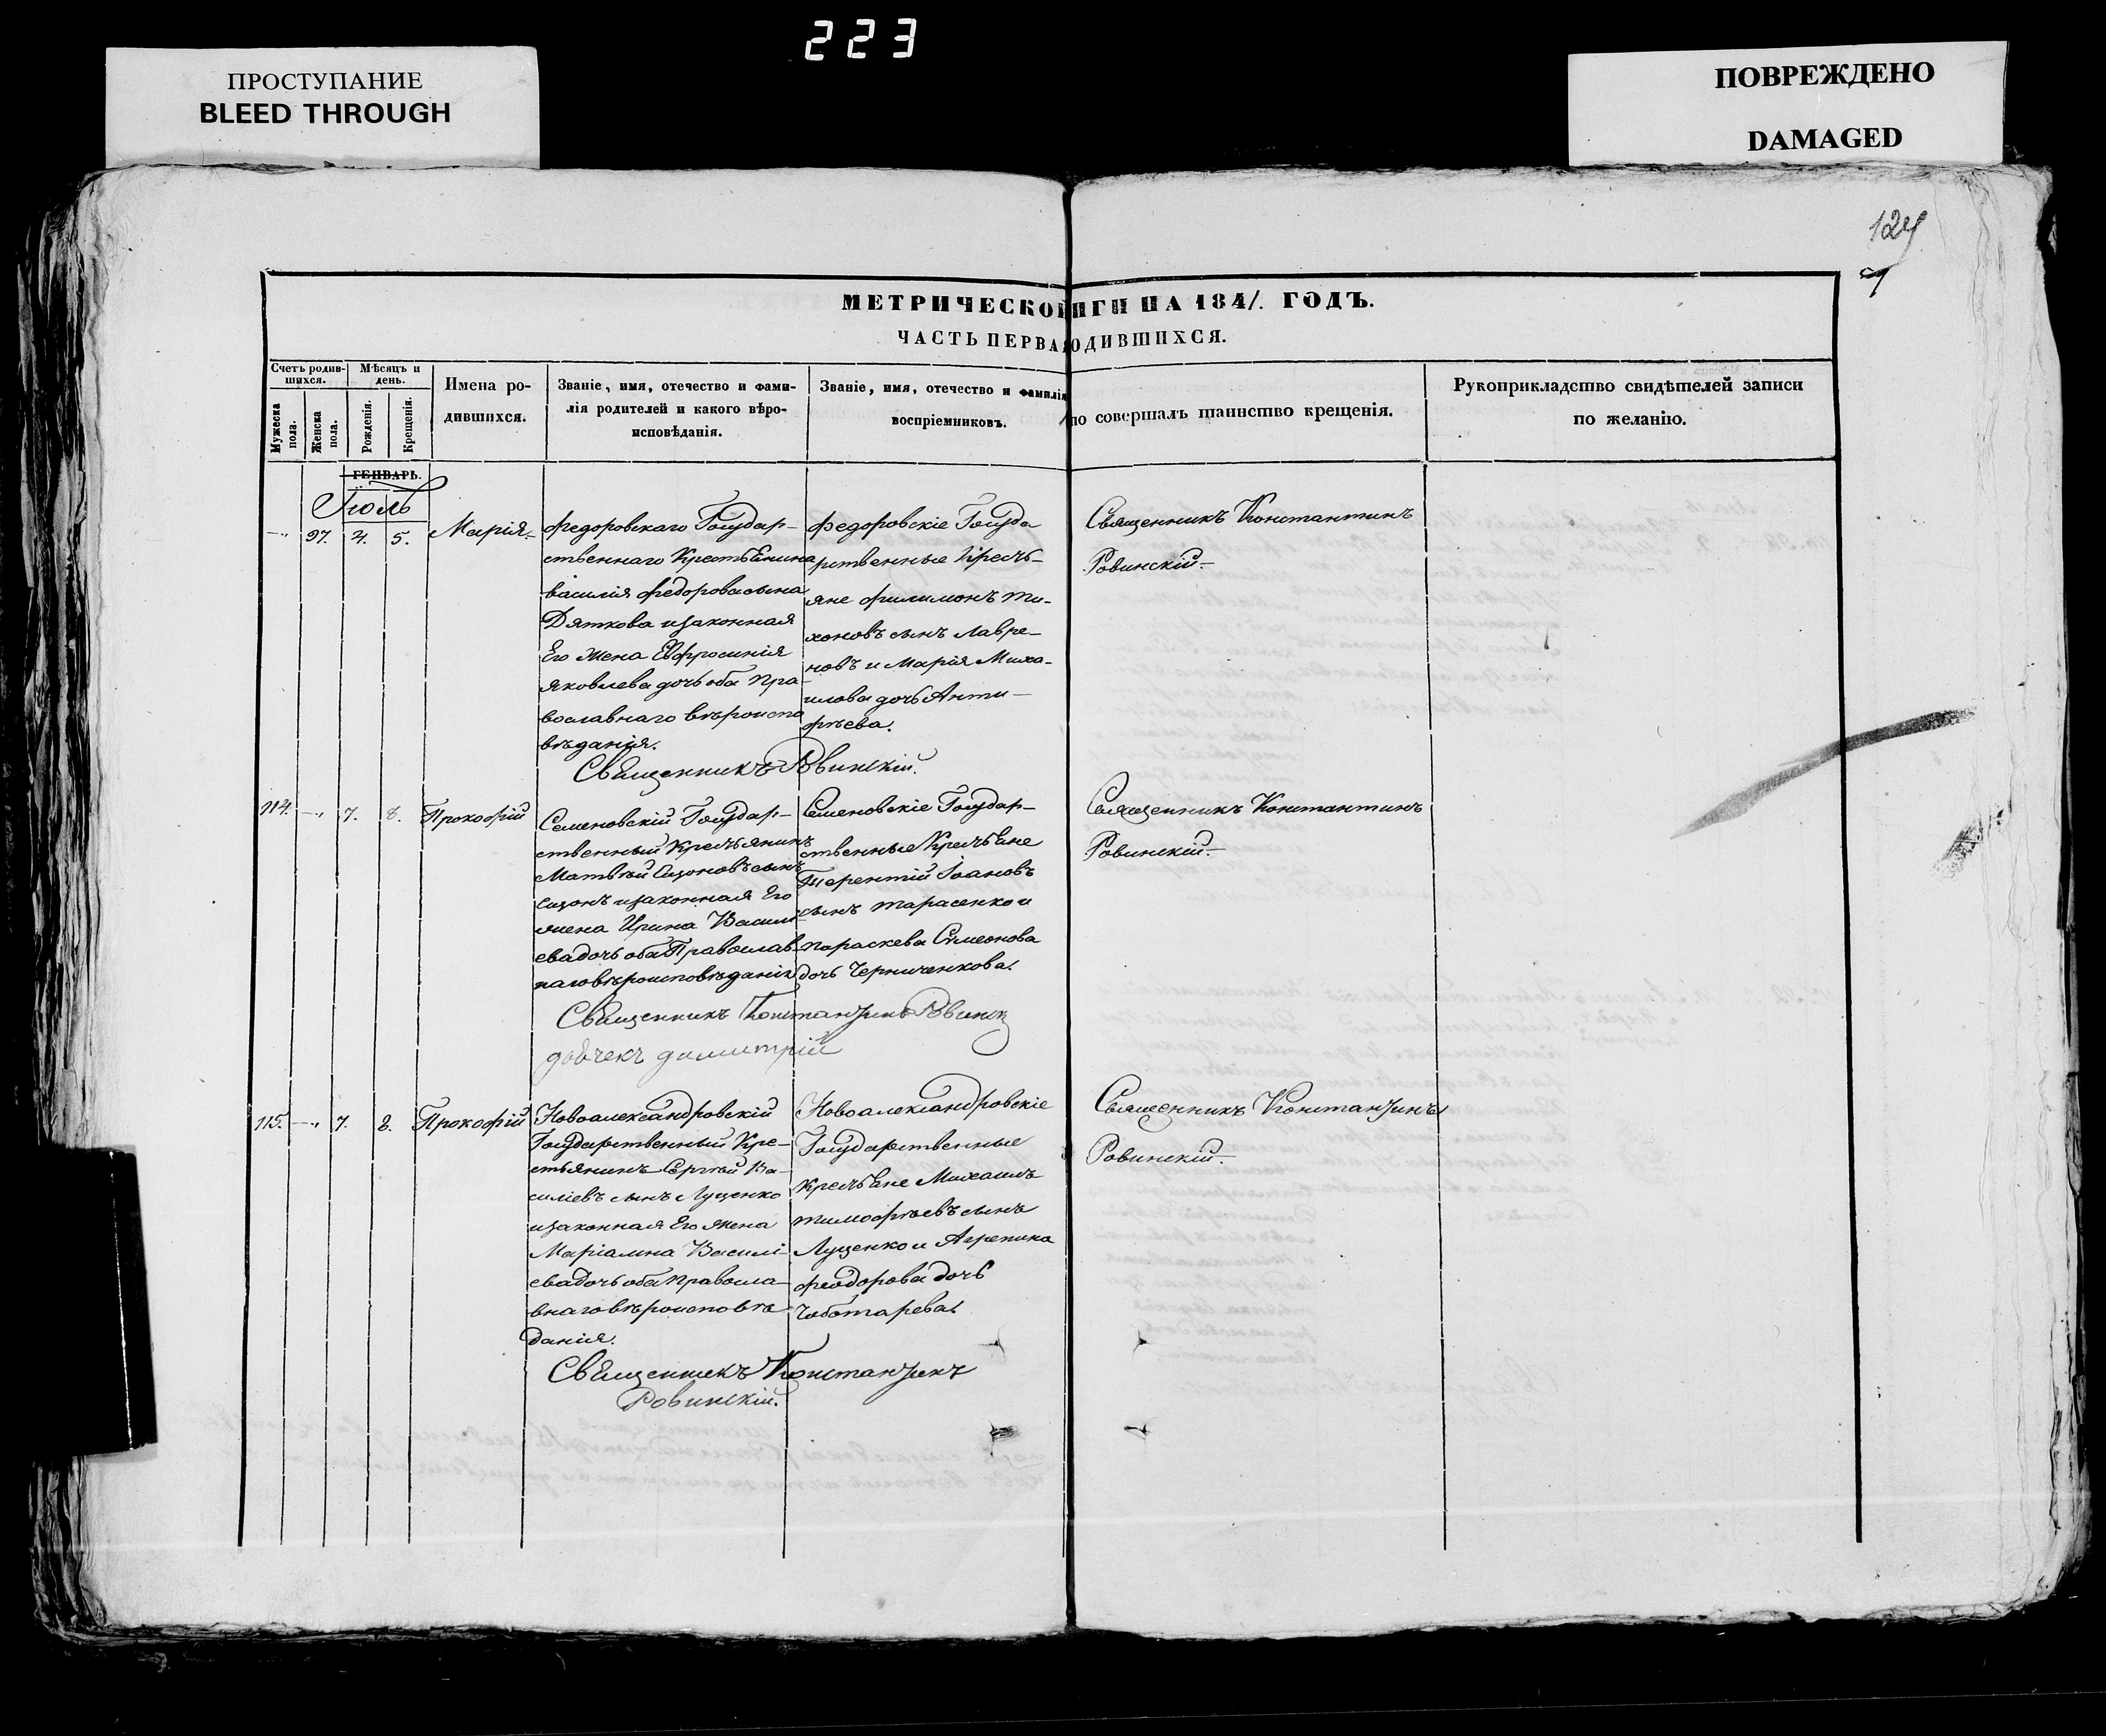 223
ПРОСТУПАНИЕ
BLEED THROUGH
ПОВРЕЖДЕНО
DAMAGED
129
МЕТРИЧЕСКОЙ ИГИ НА 1841. ГОДЪ.
ЧАСТЬ ПЕРВА ОДИВШИХСЯ.
Счетъ родив-
шихся.
Мѣсяцъ и
день.
Мужеска
пола.
Женска
пола.
Рожденія.
Крещенія.
Имена ро-
дившихся.
Званіе, имя, отечество и фами-
лія родителей и какого вѣро-
исповѣданія.
Званіе, имя, отечество и фамилія
воспріемниковъ.
то совершалъ таинство крещенія.
Рукоприкладство свидѣтелей записи
по желанію.
ГЕНВАРЬ.
Іюль
97. 5. Марія.
Федоровскаго Государ-
ственнаго Крестьянина
василія федорова сына
Дяткова и законная
Его жена Евфросинія
яковлева дочь оба Пра-
вославнаго вѣроиспо
вѣданія.
федоровскіе Госуда
рственные Кресть-
яне филимонъ ти-
хоновъ сынъ лавре-
новъ и Марія Миха-
илова дочь Анти-
фѣева.
Священникъ Константинъ
Ровинскій.
Священникъ Ровинскій.
114. 7. 8. Прокофій
Семеновскій Государ-
ственный Крестьянинъ
Матвѣй Сизоновъ сынъ
сизонъ и законная Его
жена Ирина Василі
ева дочь оба Православ
наго вѣроисповѣданія
Семеновскіе Государ-
ственные Крестьяне
Терентій Іоановъ
сынъ тарасенко и
параскева Симеонова
дочь Черниченкова.
Священникъ Константинъ
Ровинскій.
Священникъ Константинъ Ровинск
димитрій
115. 7. 8. Прокофій
Новоалександровскій
Государственный Кре-
стьянинъ Сергѣй Ва-
силіевъ сынъ Луценко
и законная Его жена
Маріамна Василі
ева дочь оба правосла-
внаго вѣроисповѣ
данія.
Новоалександровскіе
Государственные
крестьяне Михаилъ
тимофѣевъ сынъ
Луценко и Агрепина
феодорова дочь
Чоботарева.
Священникъ Константинъ
Ровинскій.
Священникъ Константинъ
Ровинскій.